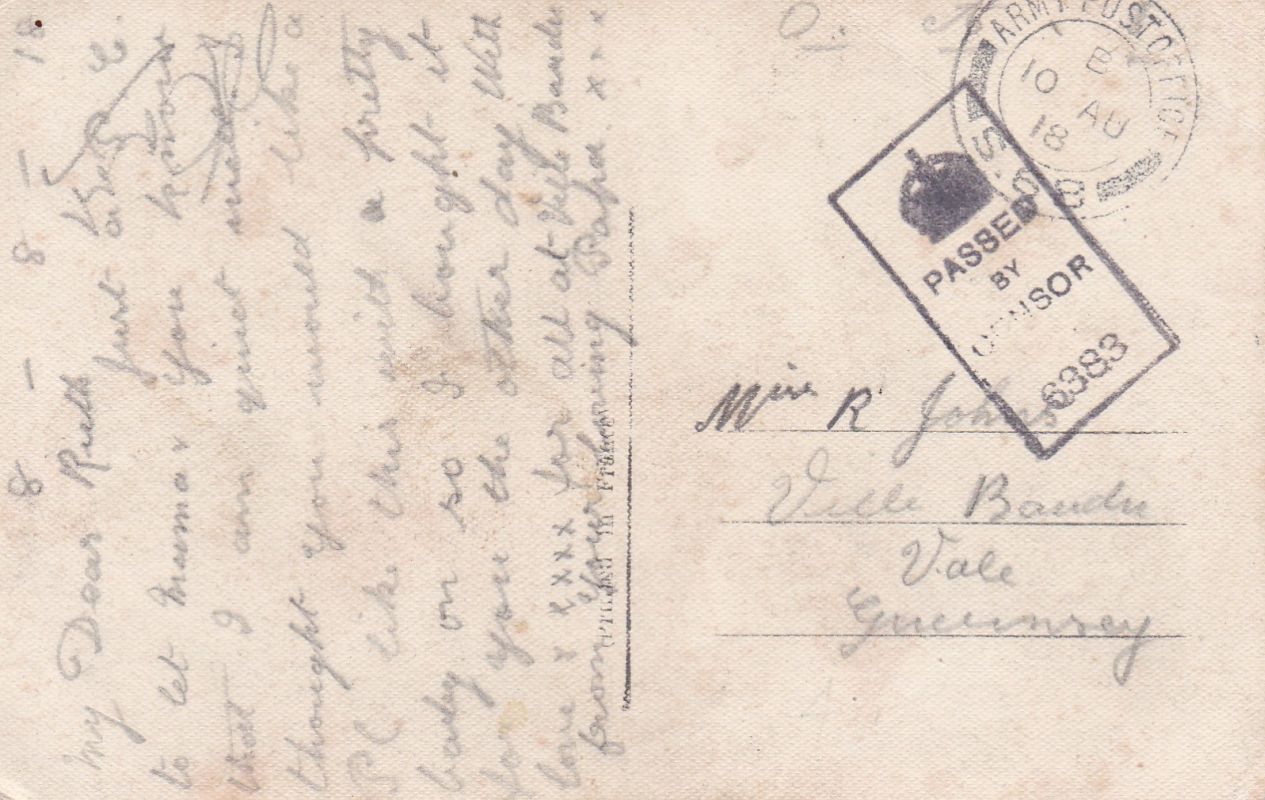 8 – 8 – 18
My Dear Ruth
just a
to let Mama & You know
that I am quiet
thought you would like a
PC like this with a pretty
baby on so I bought it
for you the other day With
love & xxx for all at Ville Baudu
from your loving Papa x x x
Printed in France
O. A.
ARMY POST OFFICE
B
10 AU
18
S.68
PASSED
BY
CENSOR
6383
Miss R Johns
Ville Baudu
Vale
Guernsey